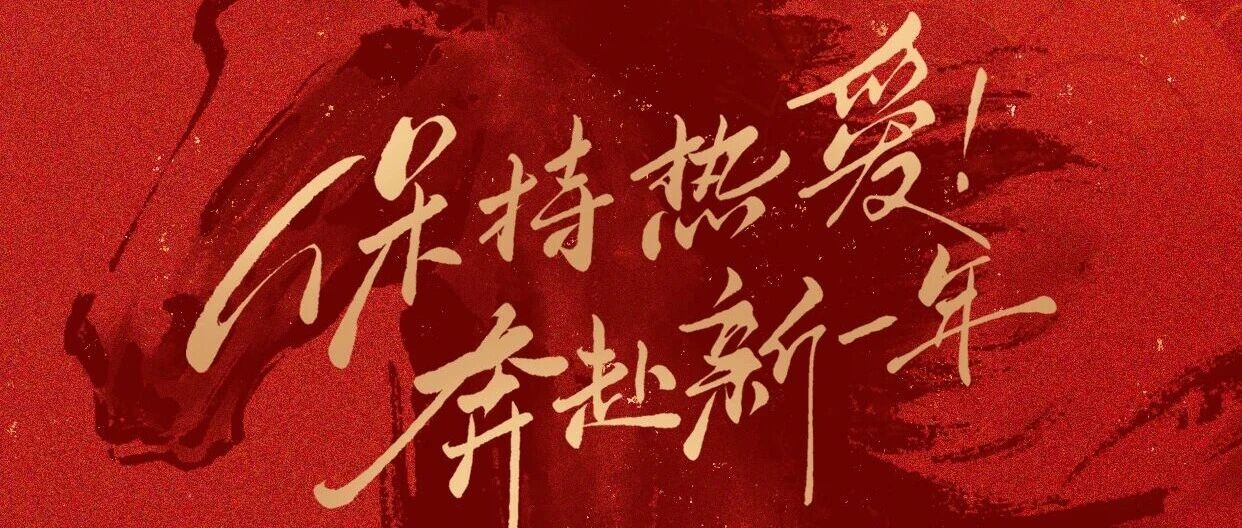 保持热爱!
奔赴新一年